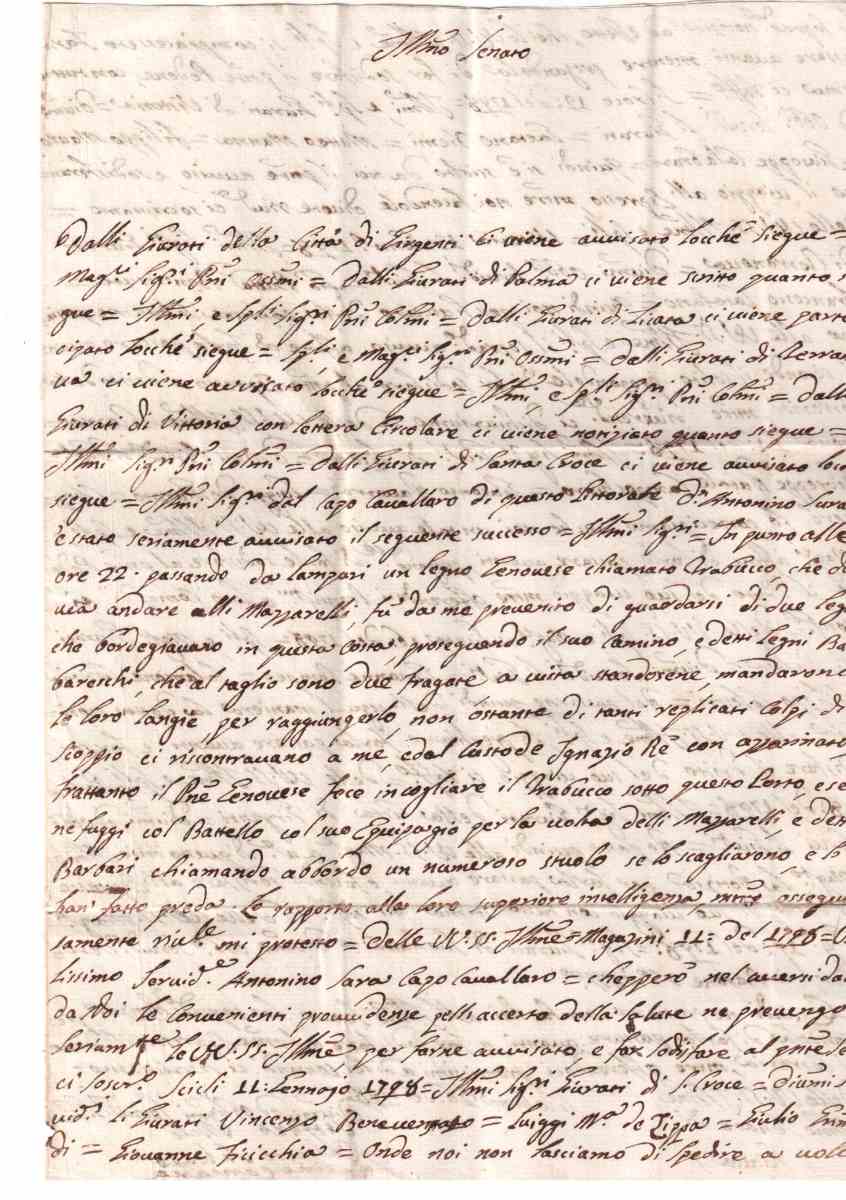 Illmo Senato
Dalli Giurati della Città di Girgenti ci viene avvisato locchè siegue =
Mag.ci Sig.ri Pñi Ossmi = Dalli Giurati di Palma ci viene scritto quanto s
gue = Illmi, e Spli Sig.ri Pñi Colmi = Dalli Giurati di Licata ci viene parte
cipato locchè siegue = Spli, e Mag.ci Sig.ri Pñi Ossmi = Dalli Giurati di Terran
va ci viene avvisato locchè siegue = Illmi, e Spli Sig.ri Pñi Colmi = Dalli
Giurati di Vittoria con lettera Circolare ci viene notiziato quanto siegue =
Illmi Sig.ri Pñi Colmi = Dalli Giurati di Santa Croce ci viene avvisato loc
siegue = Illmi Sig.ri dal Capo Cavallaro di questo Littorale D.n Antonino Sara
è stato seriamente avvisato il seguente successo = Illmi Sig.ri = In punto alle
ore 22. passando da lampari un legno Genovese chiamato Trabucco, che do
via andare alli Mazzarelli, fu da me prevenito di guardarsi di due leg
che bordegiavano in questa Costa, proseguendo il suo Camino, e detti legni Ba
bareschi che al taglio sono due fragate a vista standosene, mandarono
le loro langie per raggiungerlo, non ostante di tanti replicati Colpi di
Scoppio ci riscontravano a me, e dal Custode Ignazio Rè con
frattanto il Pñe Genovese fece incogliare il Trabucco sotto questo Porto, e se
ne fuggì col Battello col suo Equipagio per la volta delli Mazzarelli, e dett
Barbari chiamando abbordo un numeroso stuolo se lo scagliarono, e l
han' fatto preda. Le rapporto alla loro superiore intelligenza, mtre ossequio
samente riv.le mi protesto = Delle VV. SS. Illme = Magazini 11: del 1798 = U
lissimo Servid.e Antonino Sara Capo Cavallaro = cheppero nel aversi da
da Voi le Convenienti provvidenze pell'accerto della Salute ne prevengo
Seriam.te le VV. SS. Illme, per farne avvisato, e far sodisfare al pñte
ci soscr. Scicli 11: Gennajo 1798 = Illmi Sig.ri Giurati di S. Croce = D'umi s
vid.i Li Giurati Vincenzo Beneventano = Luiggi M.a de Zippa = Giulio
di = Giovanne Ficicchia = Onde noi non lasciamo di spedire a vole